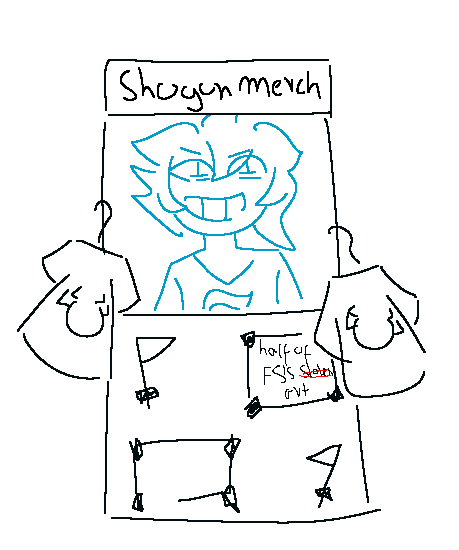 Shogun merch
half of
FSIS stolen
art